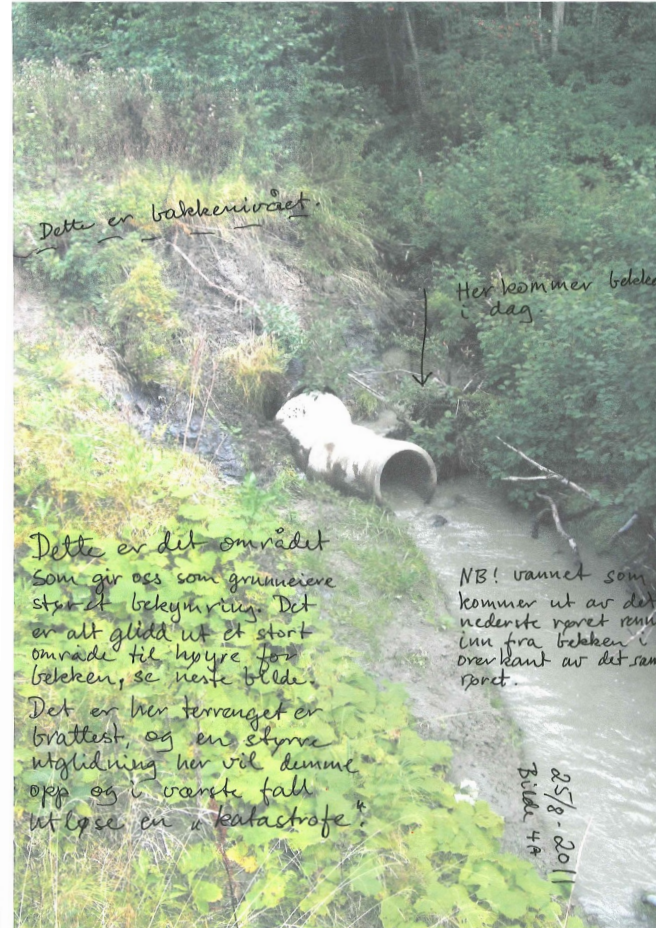 Dette er bakkenivået.
Her kommer bekke
i dag.
Dette er det området
som gir oss som grunneiere
størst bekymring. Det
er alt glidd ut et stort
område til høyre for
bekken, se neste bilde.
Det er her terrenget er
brattest, og en større
utglidning her vil demme
opp og i værste fall
utløse en "katastrofe".
NB! vannet som
kommer ut av det
nederste røret renn
inn fra bekken i
overkant av det sam
røret.
25/8-2011
Bilde 4A